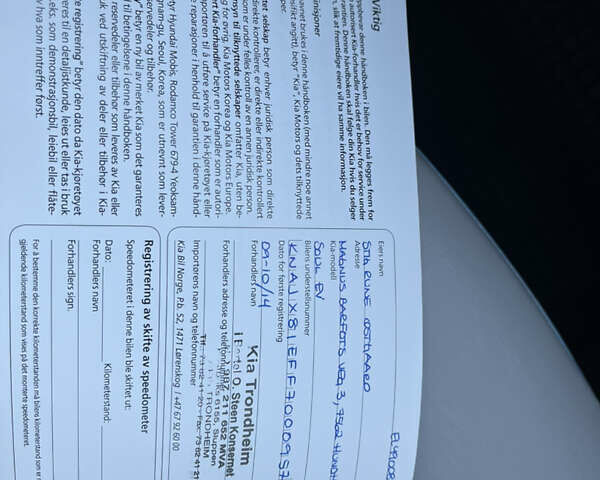 Viktig
ppbevar denne håndboken i bilen. Den må legges frem for
n autorisert Kia-forhandler hvis det er behov for service under
rantien. Denne håndboken skal følge din Kia hvis du selger
, slik at fremtidige eiere vil ha samme informasjon.
nisjoner
avnet brukes i denne håndboken (med mindre noe annet
esifikt angitt), betyr "Kia", Kia Motors og dets tilknyttede
aper.
tet selskap betyr enhver juridisk person som direkte
direkte kontrollerer, er direkte eller indirekte kontrollert
som er under felles kontroll av en annen juridisk person.
nsyn til tilknyttede selskaper omfatter Kia, uten be-
g for øvrig, Kia Motors Korea og Kia Motors Europe.
ert Kia-forhandler" betyr en forhandler som er autori-
sportøren til å utføre service på Kia-kjøretøyet eller
e reparasjoner i henhold til garantien i denne hånd-
tyr Hyundai Mobis, Rodamco Tower 679-4 Yeoksam-
gnam-gu, Seoul, Korea, som er utnevnt som lever-
servedeler og tilbehør.
" betyr en ny bil av merket Kia som det garanteres
til betingelsene i denne håndboken.
reservedeler eller tilbehør som leveres av Kia eller
uk ved utskiftning av deler eller tilbehør i Kia-
e registrering" betyr den dato da Kia-kjøretøyet
veres til en detaljistkunde, leies ut eller tas i bruk
.eks. som demonstrasjonsbil, leiebil eller flåte-
v hva som inntreffer først.
EL49008
Eiers navn
STIG RUNE ØSTGAARD
Adresse
MAGNUS BARFOTS VEG 3, 7562 HUNDH
Kia-modell
SOUL EV
Bilens understellsnummer
KNAJX81EFF7000957
Dato for første registrering
09-10/14
Forhandlers navn
Kia Trondheim
Steen Konsernet
987 211 652 MVA
Forhandlers adresse og telefonnummer
6156, Sluppen
TRONDHEIM
Importørens navn og telefonnummer
Kia Bil Norge, P.b. 52, 1471 Lørenskog / +47 67 92 60 00
Registrering av skifte av speedometer
Speedometeret i denne bilen ble skiftet ut:
Dato: Kilometerstand:
Forhandlers navn
Forhandlers sign.
For å bestemme den korrekte kilometerstanden må bilens kilometerstand som er
gjeldende kilometerstand som vises på det monterte speedometeret.